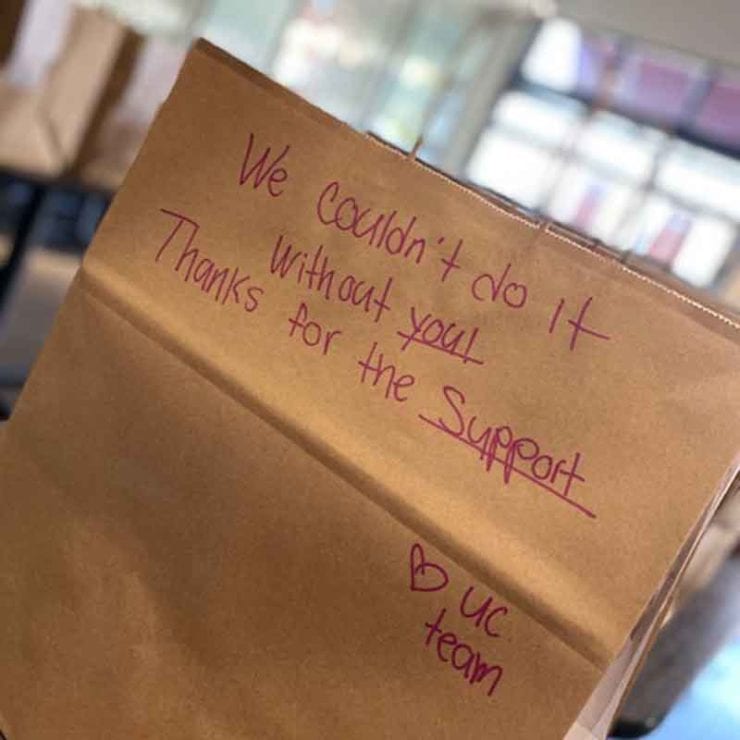 We couldn't do it
without you!
Thanks for the Support
♡ UC
team